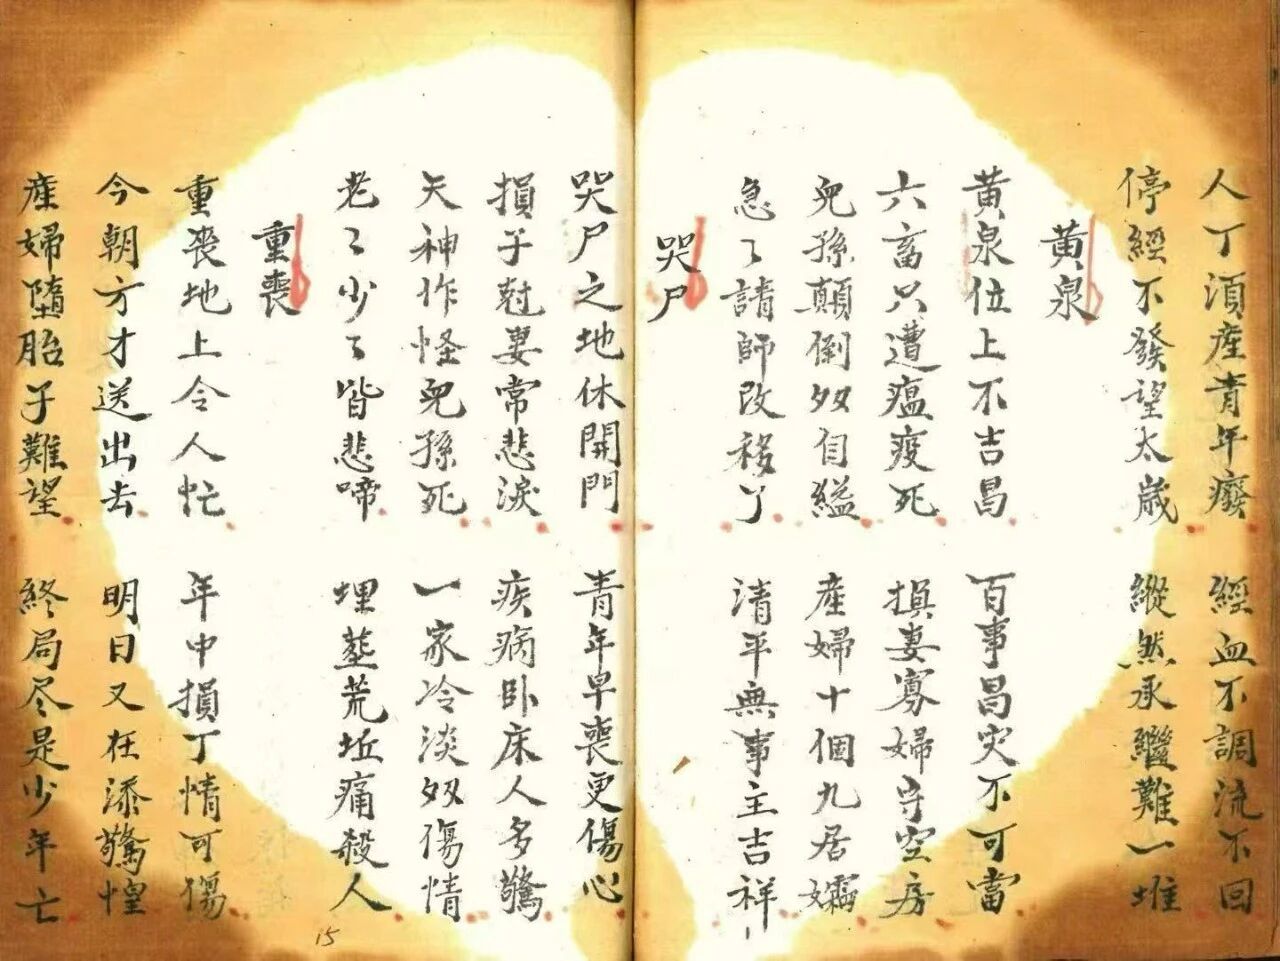 人丁須産青年癈 經血不調流不回
停經不發望太歲 縱然承繼難一堆
黄泉
黄泉位上不吉昌 百事昌灾不可當
六畜只遭瘟疫死 損妻寡婦守空房
兒孫顛倒奴自縊 産婦十個九居孀
急〻請師改移丫 清平無事主吉祥
哭尸
哭尸之地休開門 青年早喪更傷心
損子尅妻常悲淚 疾病卧床人多驚
天神作怪兒孫死 一家冷淡奴傷情
老〻少〻皆悲啼 埋塟荒坵痛殺人
重喪
重喪地上令人忙 年中損丁情可傷
今朝方才送出去 明日又在添驚惶
産婦墮胎子難望 終局尽是少年亡
15